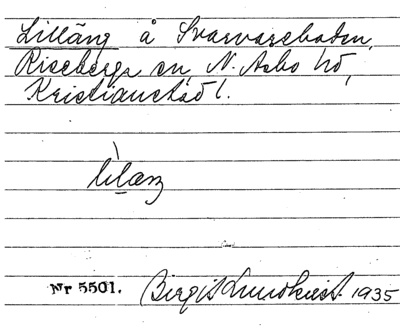 Lilläng å Svarvareboden,
Riseberga sn, N. Åsbo hd,
Kristianstad l.
lìlæŋ
Nr 5501. Birgit Lundkvist 1935